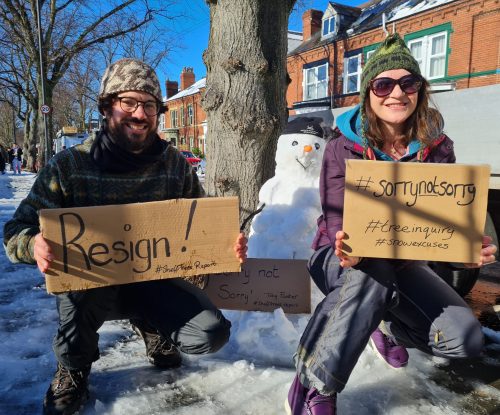 Resign!
#ShefTrees Report
#sorrynotsorry
#treeinquiry
#snowexcuses
y not
Sorry!